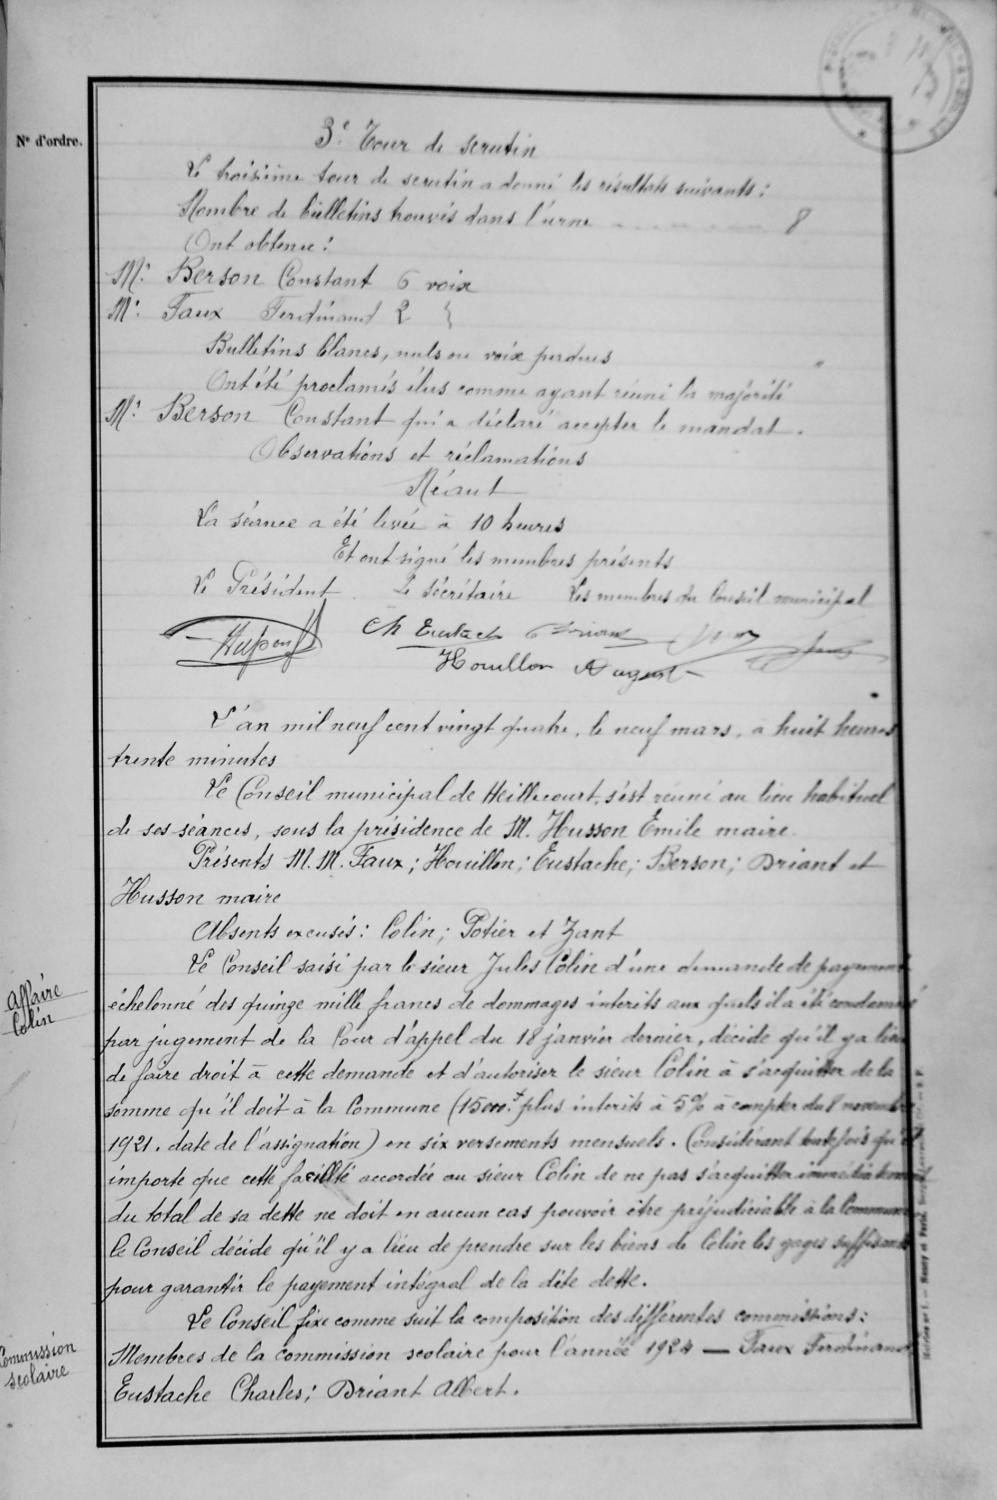 N° d'ordre.
3e Tour de scrutin
Le troisième tour de scrutin a donné les résultats suivants :
Nombre de bulletins trouvés dans l'urne 8
Ont obtenu :
Mr Berson Constant 6 voix
Mr Faux Ferdinand 2
Bulletins blancs, nuls ou voix perdues "
Ont été proclamés élus comme ayant réuni la majorité
Mr Berson Constant qui a déclaré accepter le mandat.
Observations et réclamations
Néant
La séance a été levée à 10 heures
Et ont signé les membres présents
Le Président Le Sécrétaire Les membres du Conseil municipal
Ch Eustache Briant
Houillon
L'an mil neuf cent vingt quatre, le neuf mars, à huit heures
trente minutes
Le Conseil municipal de Heillecourt, s'est réuni au lieu habituel
de ses séances, sous la présidence de M. Husson Emile maire.
Présents M.M. Faux; Houillon; Eustache; Berson; Briant et
Husson maire
Absents excusés : Colin; Potier et Zant
Le Conseil saisi par le sieur Jules Colin d'une demande de payement
Affaire
Colin
échelonné des quinze mille francs de dommages interits aux quels il a été condamné
par jugement de la Cour d'appel du 18 janvier dernier, décide qu'il y a lieu
de faire droit à cette demande et d'autoriser le sieur Colin à s'acquitter de la
somme qu'il doit à la Commune (15000f plus interits à 5% à compter du 8 novembre
1921. date de l'assignation) en six versements mensuels. Considérant toutefois qu'il
importe que cette facilité accordée au sieur Colin de ne pas s'acquitter immédiatement
du total de sa dette ne doit en aucun cas pouvoir être préjudiciable à la Commune
le Conseil décide qu'il y a lieu de prendre sur les biens de Colin les gages suffisants
pour garantir le payement intégral de la dite dette.
Le Conseil fixe comme suit la composition des différentes commissions :
Commission
scolaire
Membres de la commission scolaire pour l'année 1924 — Faux Ferdinand
Eustache Charles; Briant Albert.